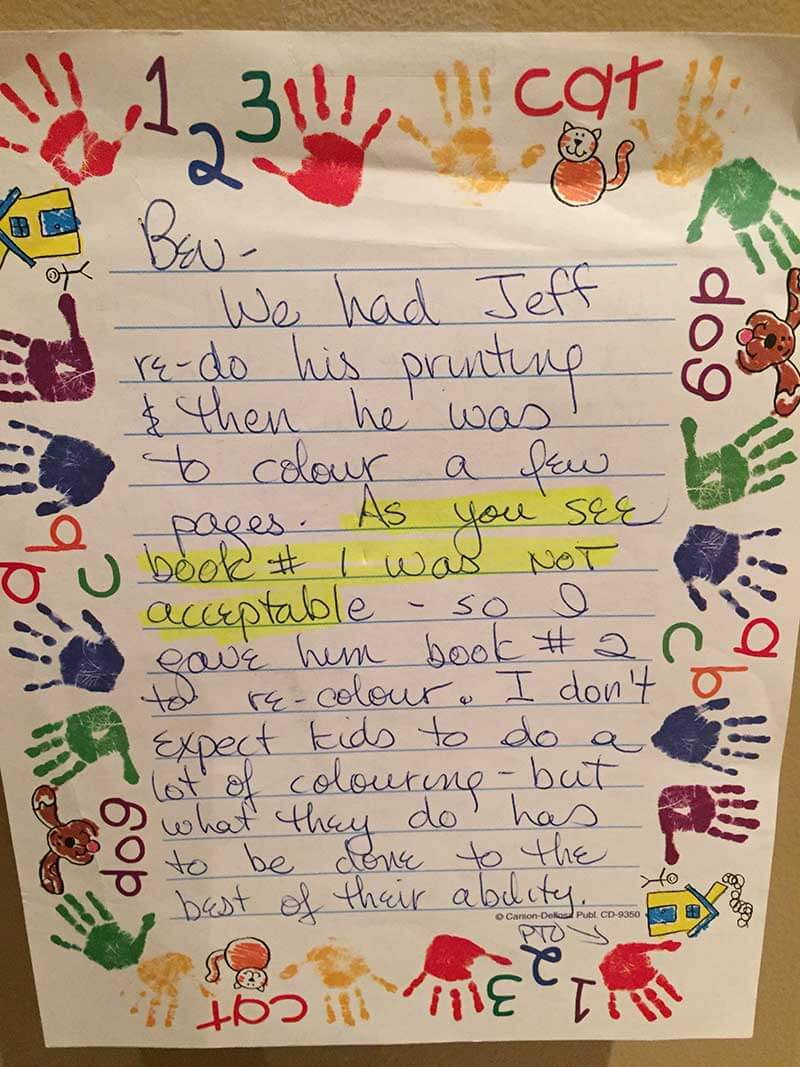 1 2 3 cat
Bev -
We had Jeff
re-do his printing
& then he was
to colour a few
pages. As you see
book # 1 was NOT
acceptable - so I
gave him book # 2
to re-colour. I don't
expect kids to do a
lot of colouring - but
what they do has
to be done to the
best of their ability.
© Carson-Dellosa Publ. CD-9350
PTO
dog
a b c
dog
a b c
1 2 3 cat